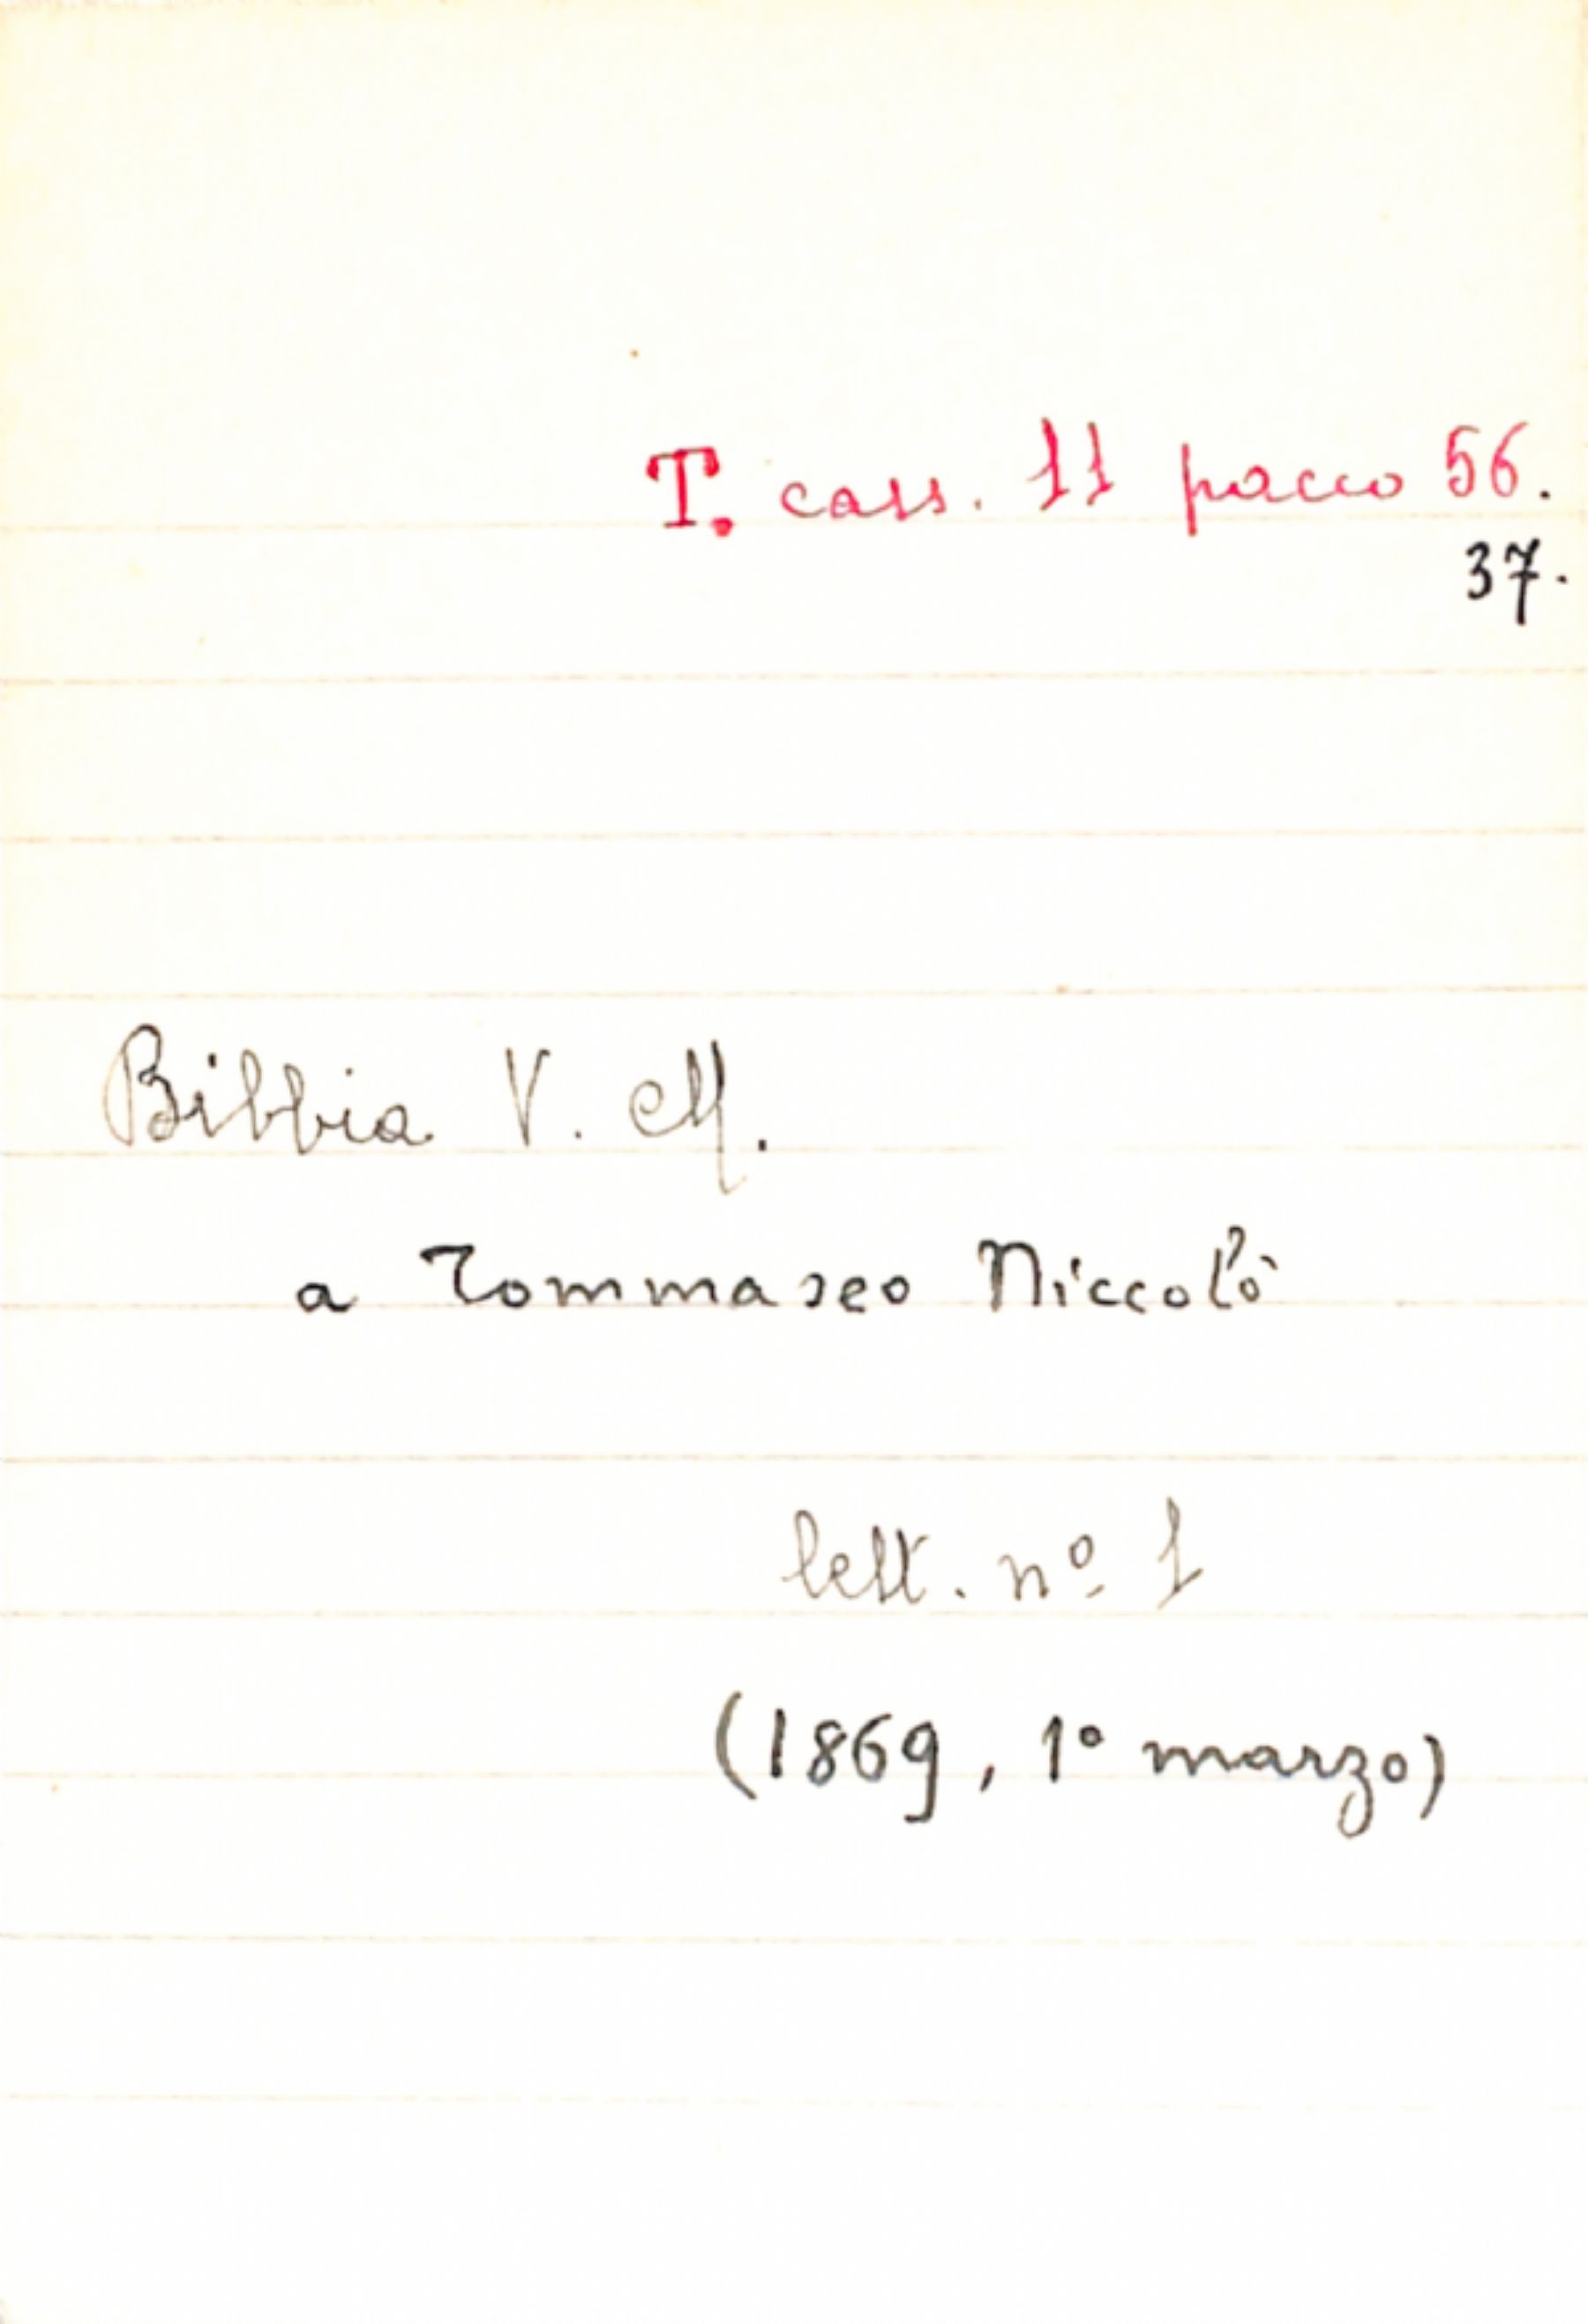 T. cass. 11 pacco 56.
37.
Bibbia V. M.
a Tommaseo Niccolò
lett. nº 1
(1869, 1º marzo)